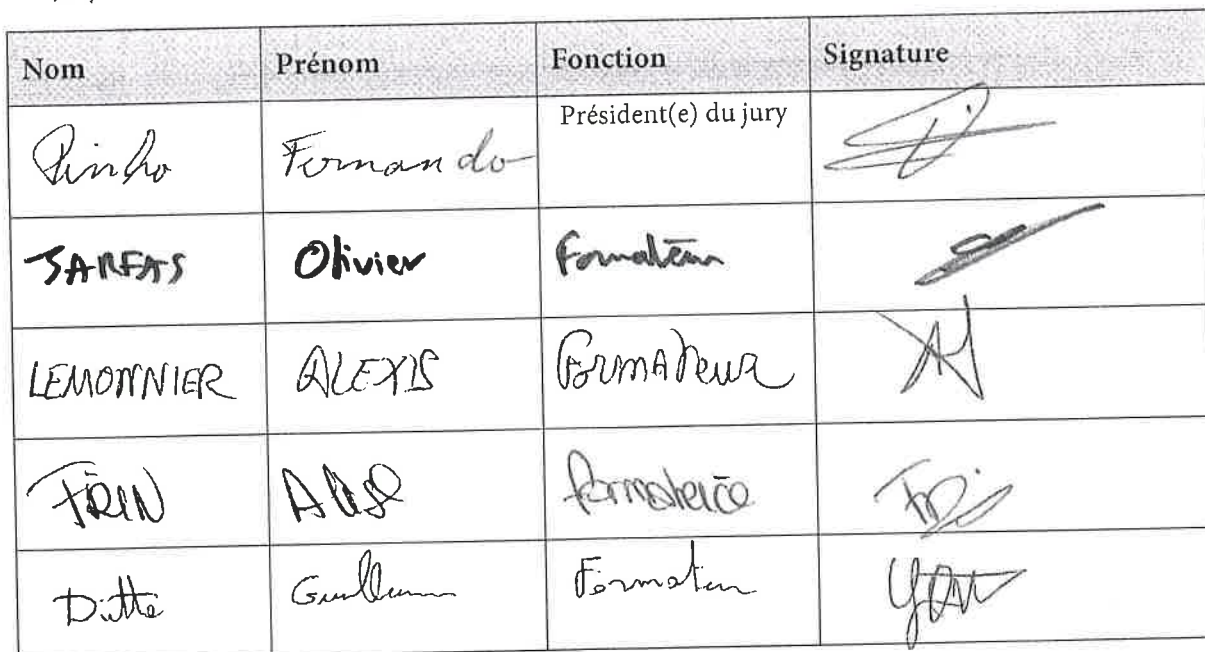 Nom Prénom Fonction Signature
Pinho Fernando Président(e) du jury
SARFAS Olivier Formateur
LEMONNIER ALEXIS FORMATEUR
Alise formatrice
Ditte Guillaume Formateur